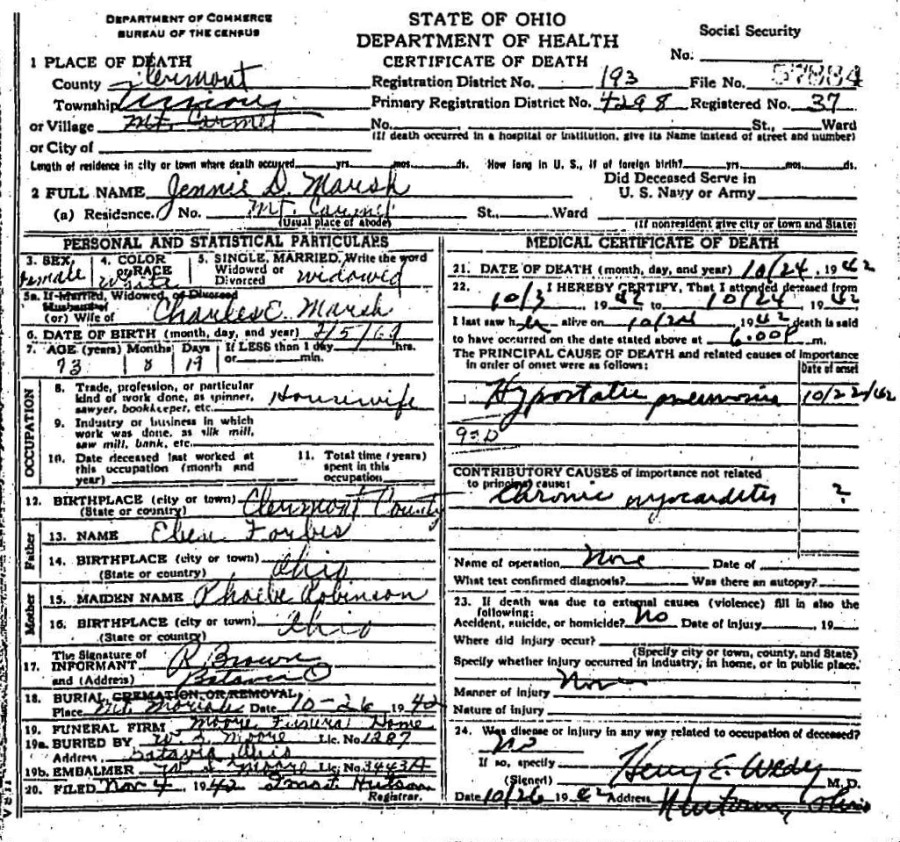 DEPARTMENT OF COMMERCE
BUREAU OF THE CENSUS
STATE OF OHIO
DEPARTMENT OF HEALTH
CERTIFICATE OF DEATH
Social Security
No.
1 PLACE OF DEATH
County Clermont
Registration District No. 193 File No. 57884
Township Union Primary Registration District No. 4298 Registered No. 37
or Village Mt. Carmel No. St., Ward
or City of (If death occurred in a hospital or institution, give its Name instead of street and number)
Length of residence in city or town where death occurred yrs. mos. ds. How long in U. S., if of foreign birth? yrs. mos. ds.
2 FULL NAME Jennie D. Marsh
Did Deceased Serve in
U. S. Navy or Army
(a) Residence. No. Mt. Carmel St., Ward
(Usual place of abode) (If nonresident give city or town and State)
PERSONAL AND STATISTICAL PARTICULARS
3. SEX, female
4. COLOR or RACE White
5. SINGLE, MARRIED, Write the word
Widowed or
Divorced widowed
5a. If Married, Widowed, or Divorced
Husband of
(or) Wife of Charles E. Marsh
6. DATE OF BIRTH (month, day, and year) 2/5/69
7. AGE (years) Months Days If LESS than 1 day hrs.
or min.
73 8 19
OCCUPATION
8. Trade, profession, or particular
kind of work done, as spinner,
sawyer, bookkeeper, etc. Housewife
9. Industry or business in which
work was done, as silk mill,
saw mill, bank, etc.
10. Date deceased last worked at
this occupation (month and
year)
11. Total time (years)
spent in this
occupation
12. BIRTHPLACE (city or town) Clermont County
(State or country)
Father
13. NAME Eben Forbis
14. BIRTHPLACE (city or town)
(State or country) Ohio
Mother
15. MAIDEN NAME Phoebe Robinson
16. BIRTHPLACE (city or town)
(State or country) Ohio
17. The Signature of
INFORMANT R. Brown
and (Address) Batavia O
18. BURIAL, CREMATION, OR REMOVAL,
Place Mt. Moriah Date 10-26 1942
19. FUNERAL FIRM Moore Funeral Home
19a. BURIED BY Moore Lic. No. 1287
Address Batavia Ohio
19b. EMBALMER Moore Lic. No. 3443A
20. FILED Nov 4 1942 Hutson
Registrar.
MEDICAL CERTIFICATE OF DEATH
21. DATE OF DEATH (month, day, and year) 10/24, 1942
22. I HEREBY CERTIFY, That I attended deceased from
10/3, 1942 to 10/24, 1942
I last saw her alive on 10/24 1942 death is said
to have occurred on the date stated above at 6:00P m.
The PRINCIPAL CAUSE OF DEATH and related causes of importance
in order of onset were as follows:
Date of onset
Hypostatic pneumonia 10/22/42
93D
CONTRIBUTORY CAUSES of importance not related
to principal cause:
Chronic myocarditis ?
Name of operation None Date of
What test confirmed diagnosis? Was there an autopsy?
23. If death was due to external causes (violence) fill in also the
following:
Accident, suicide, or homicide? No Date of injury , 19
Where did injury occur?
(Specify city or town, county, and State)
Specify whether injury occurred in industry, in home, or in public place.
None
Manner of Injury
Nature of injury
24. Was disease or injury in any way related to occupation of deceased?
No
If so, specify
(Signed) Henry E. M.D.
Date 10/26 1942 Address Newtown, Ohio